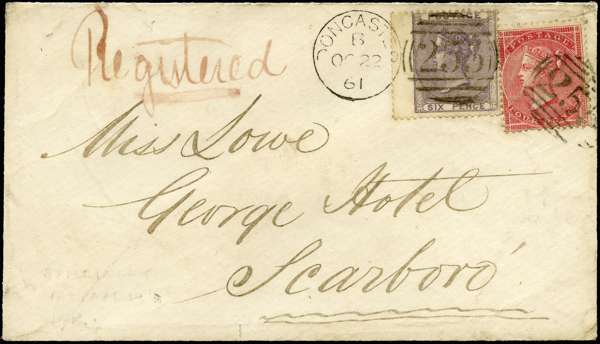 Registered
DONCASTER
B
OC 22
61
SIX PENCE
POSTAGE
Miss Lowe
George Hotel
Scarboro'